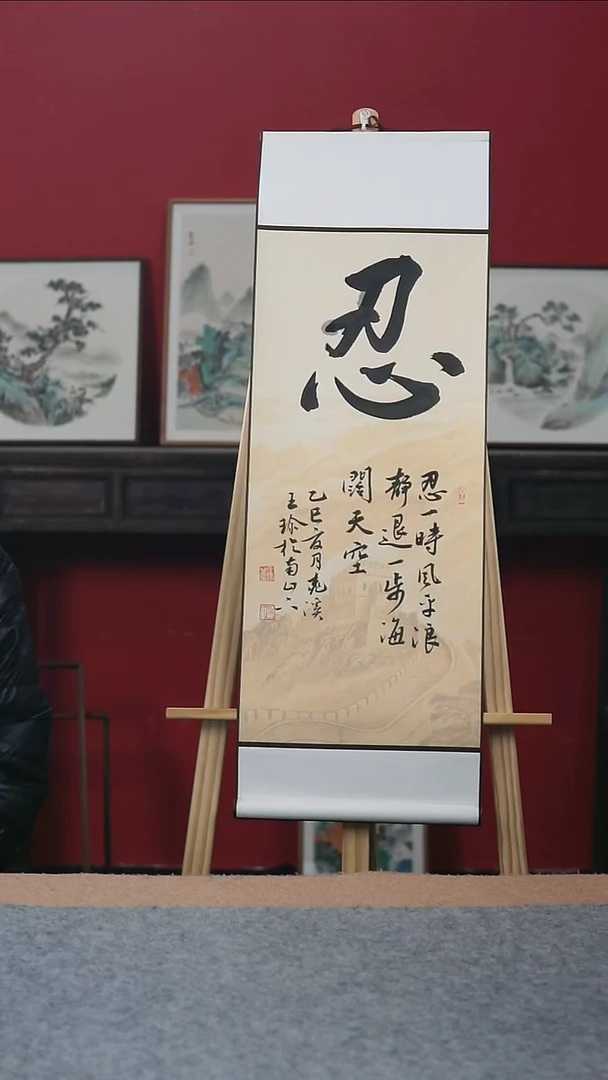 忍
忍一時風平浪
靜退一步海
闊天空
乙巳
月
王
於南山